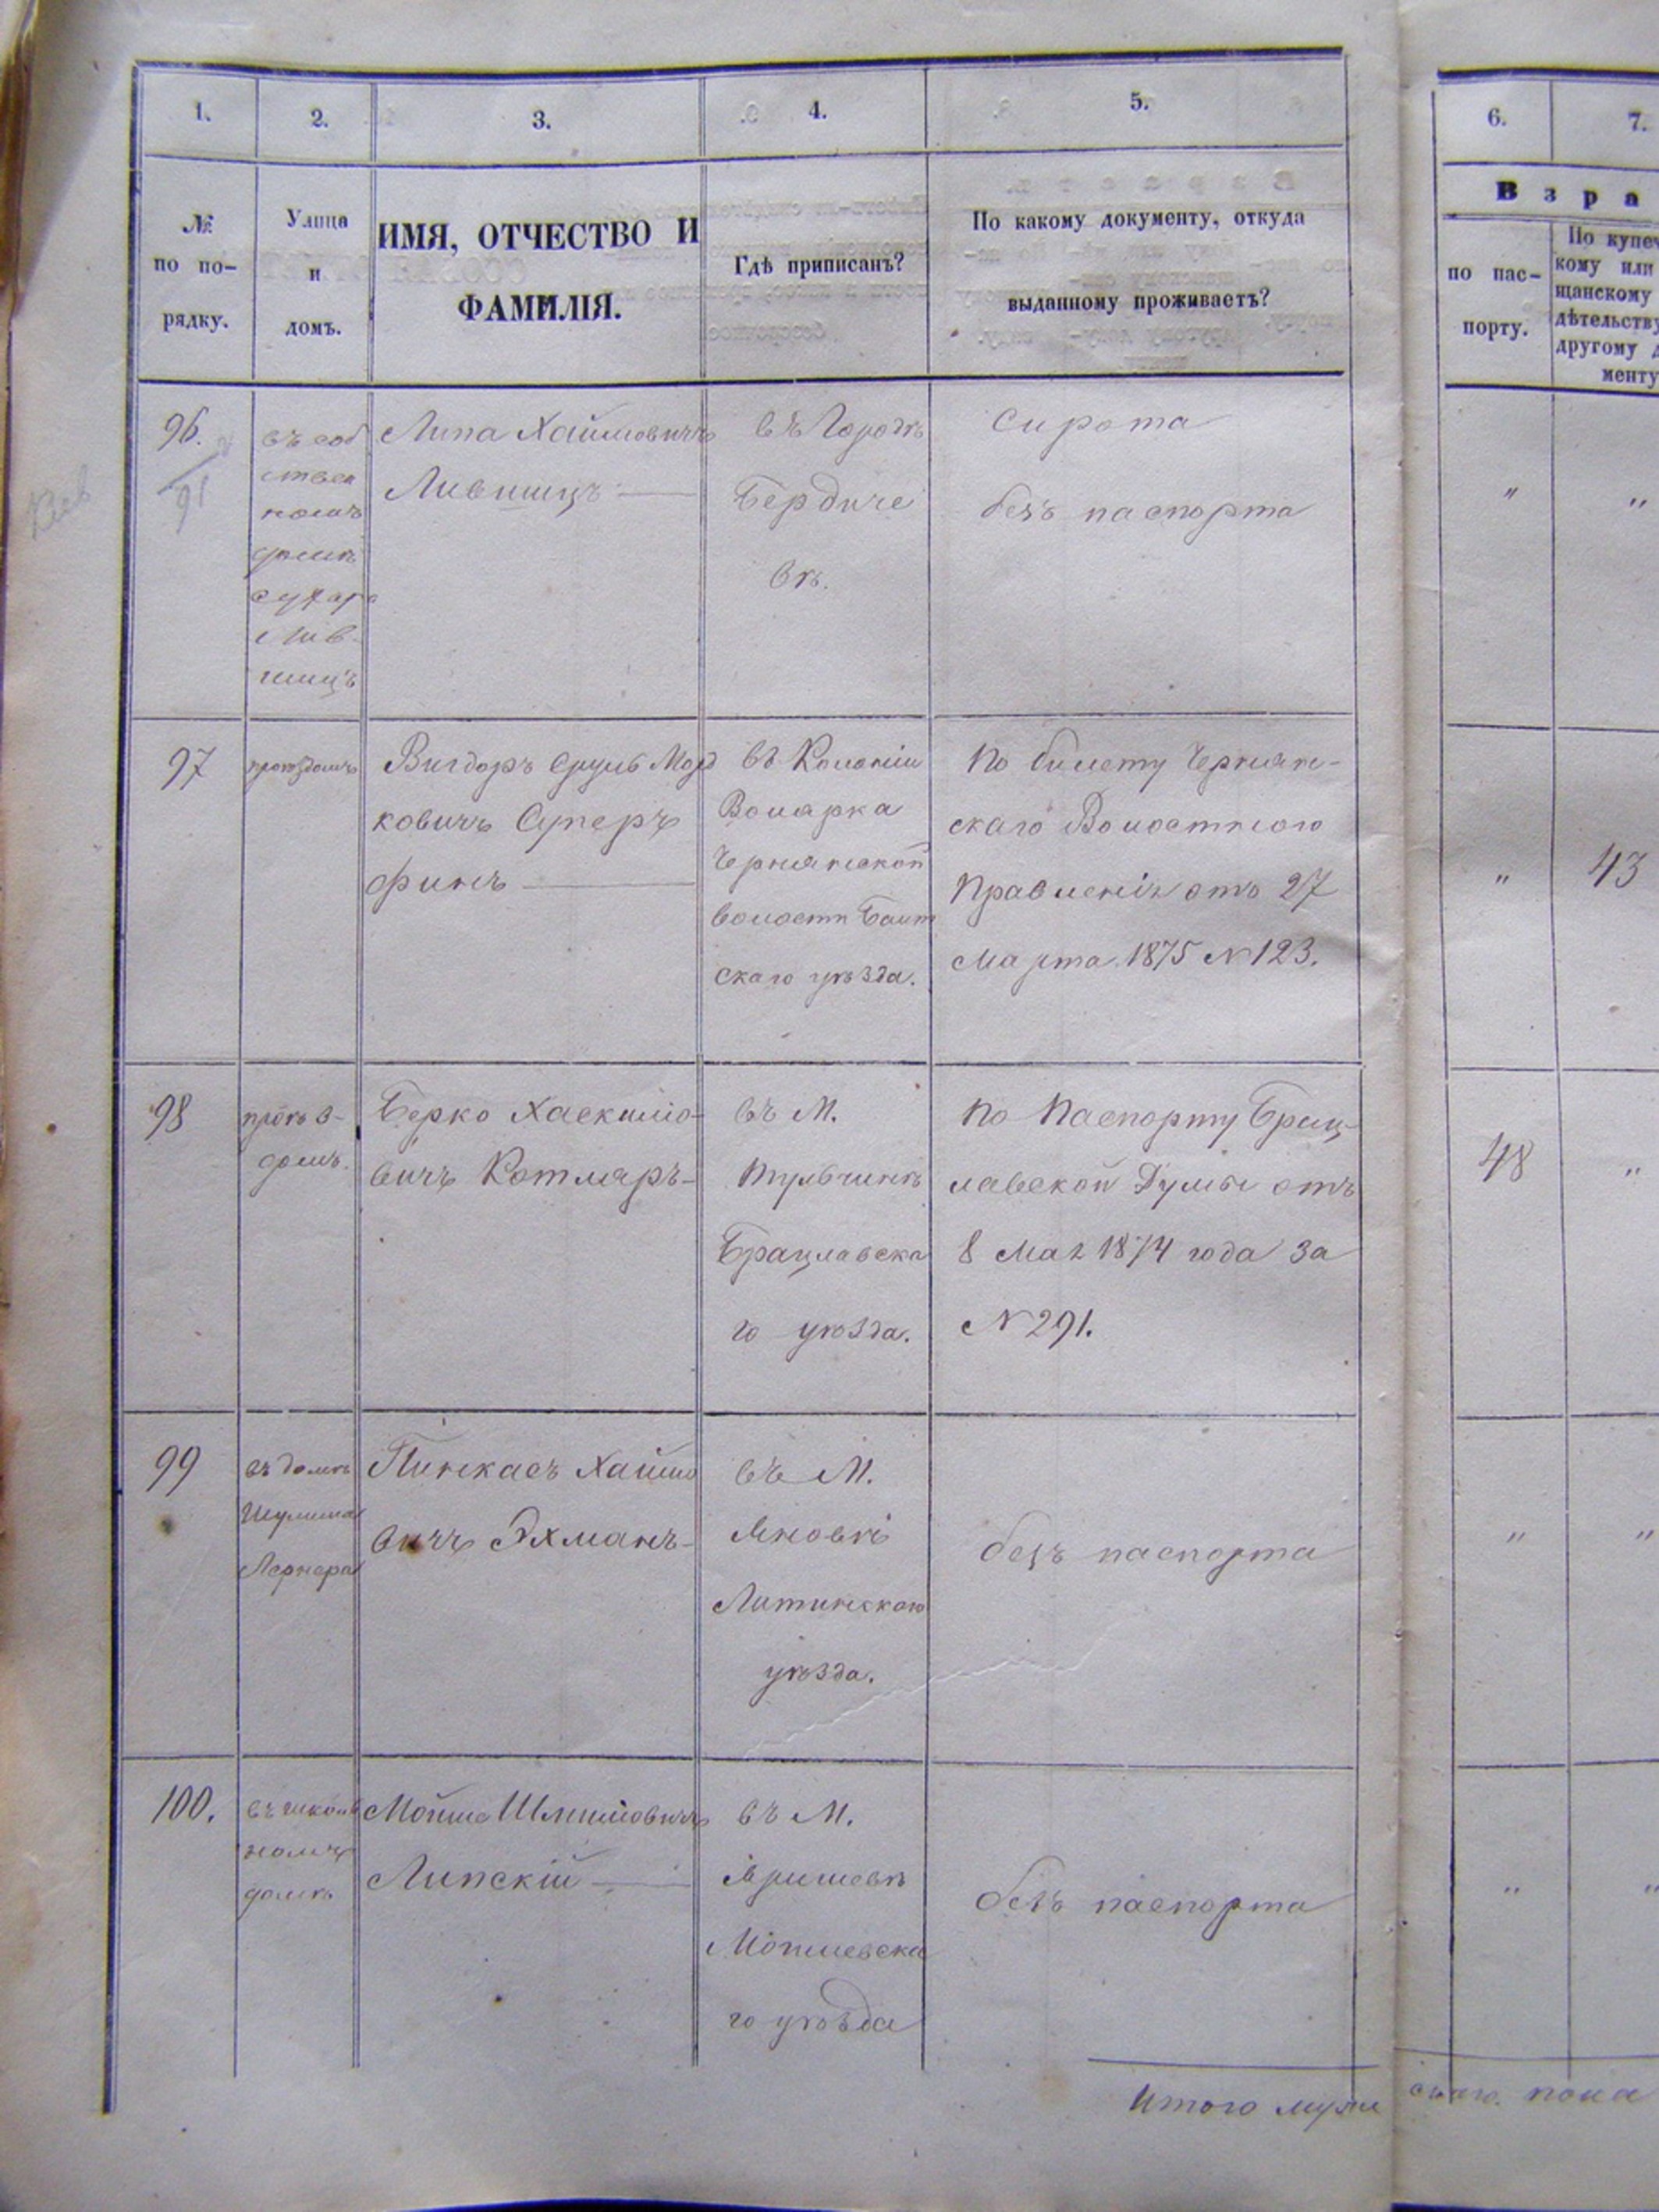 1.
2.
3.
4.
5.
6.
7.
№
по по-
рядку.
Улица
и
домъ.
ИМЯ, ОТЧЕСТВО И
ФАМИЛІЯ.
Гдѣ приписанъ?
По какому документу, откуда
выданному проживаетъ?
Взра
по пас-
порту.
По купеч
кому или
щанскому
дѣтельству
другому д
менту
96.
91
въ соб
ствен
номъ
домѣ
Лив-
шицъ
Липа Хаимовичъ
Лившицъ —
въ Городѣ
Бердиче
вѣ.
Сирота
безъ паспорта
"
"
97
проѣздомъ
Вигдоръ Сруль Морд
ковичъ Супер
финъ —
въ Колоніи
Волярка
Чернянской
волости Балт
скаго уѣзда.
По билету Чернян-
скаго Волостного
Правленія отъ 27
Марта 1875 № 123.
"
43
98
проѣз-
домъ.
Берко Хаскиліо-
вичъ Котляръ-
въ М.
Тульчинѣ
Брацлавска
го уѣзда.
По Паспорту Брац-
лавской Думы отъ
8 Мая 1874 года за
№ 291.
48
"
99
въ домѣ
Шулима
Лернера
Пинкасъ Хаимо
вичъ Эхманъ-
въ М.
Яновѣ
Литинскаго
уѣзда.
безъ паспорта
"
"
100.
въ школь
номъ
домѣ
Мойше Шлиомовичъ
Липскій —
въ М.
Яришевѣ
Могилевска
го уѣзда
безъ паспорта
"
"
Итого муже
скаго пола